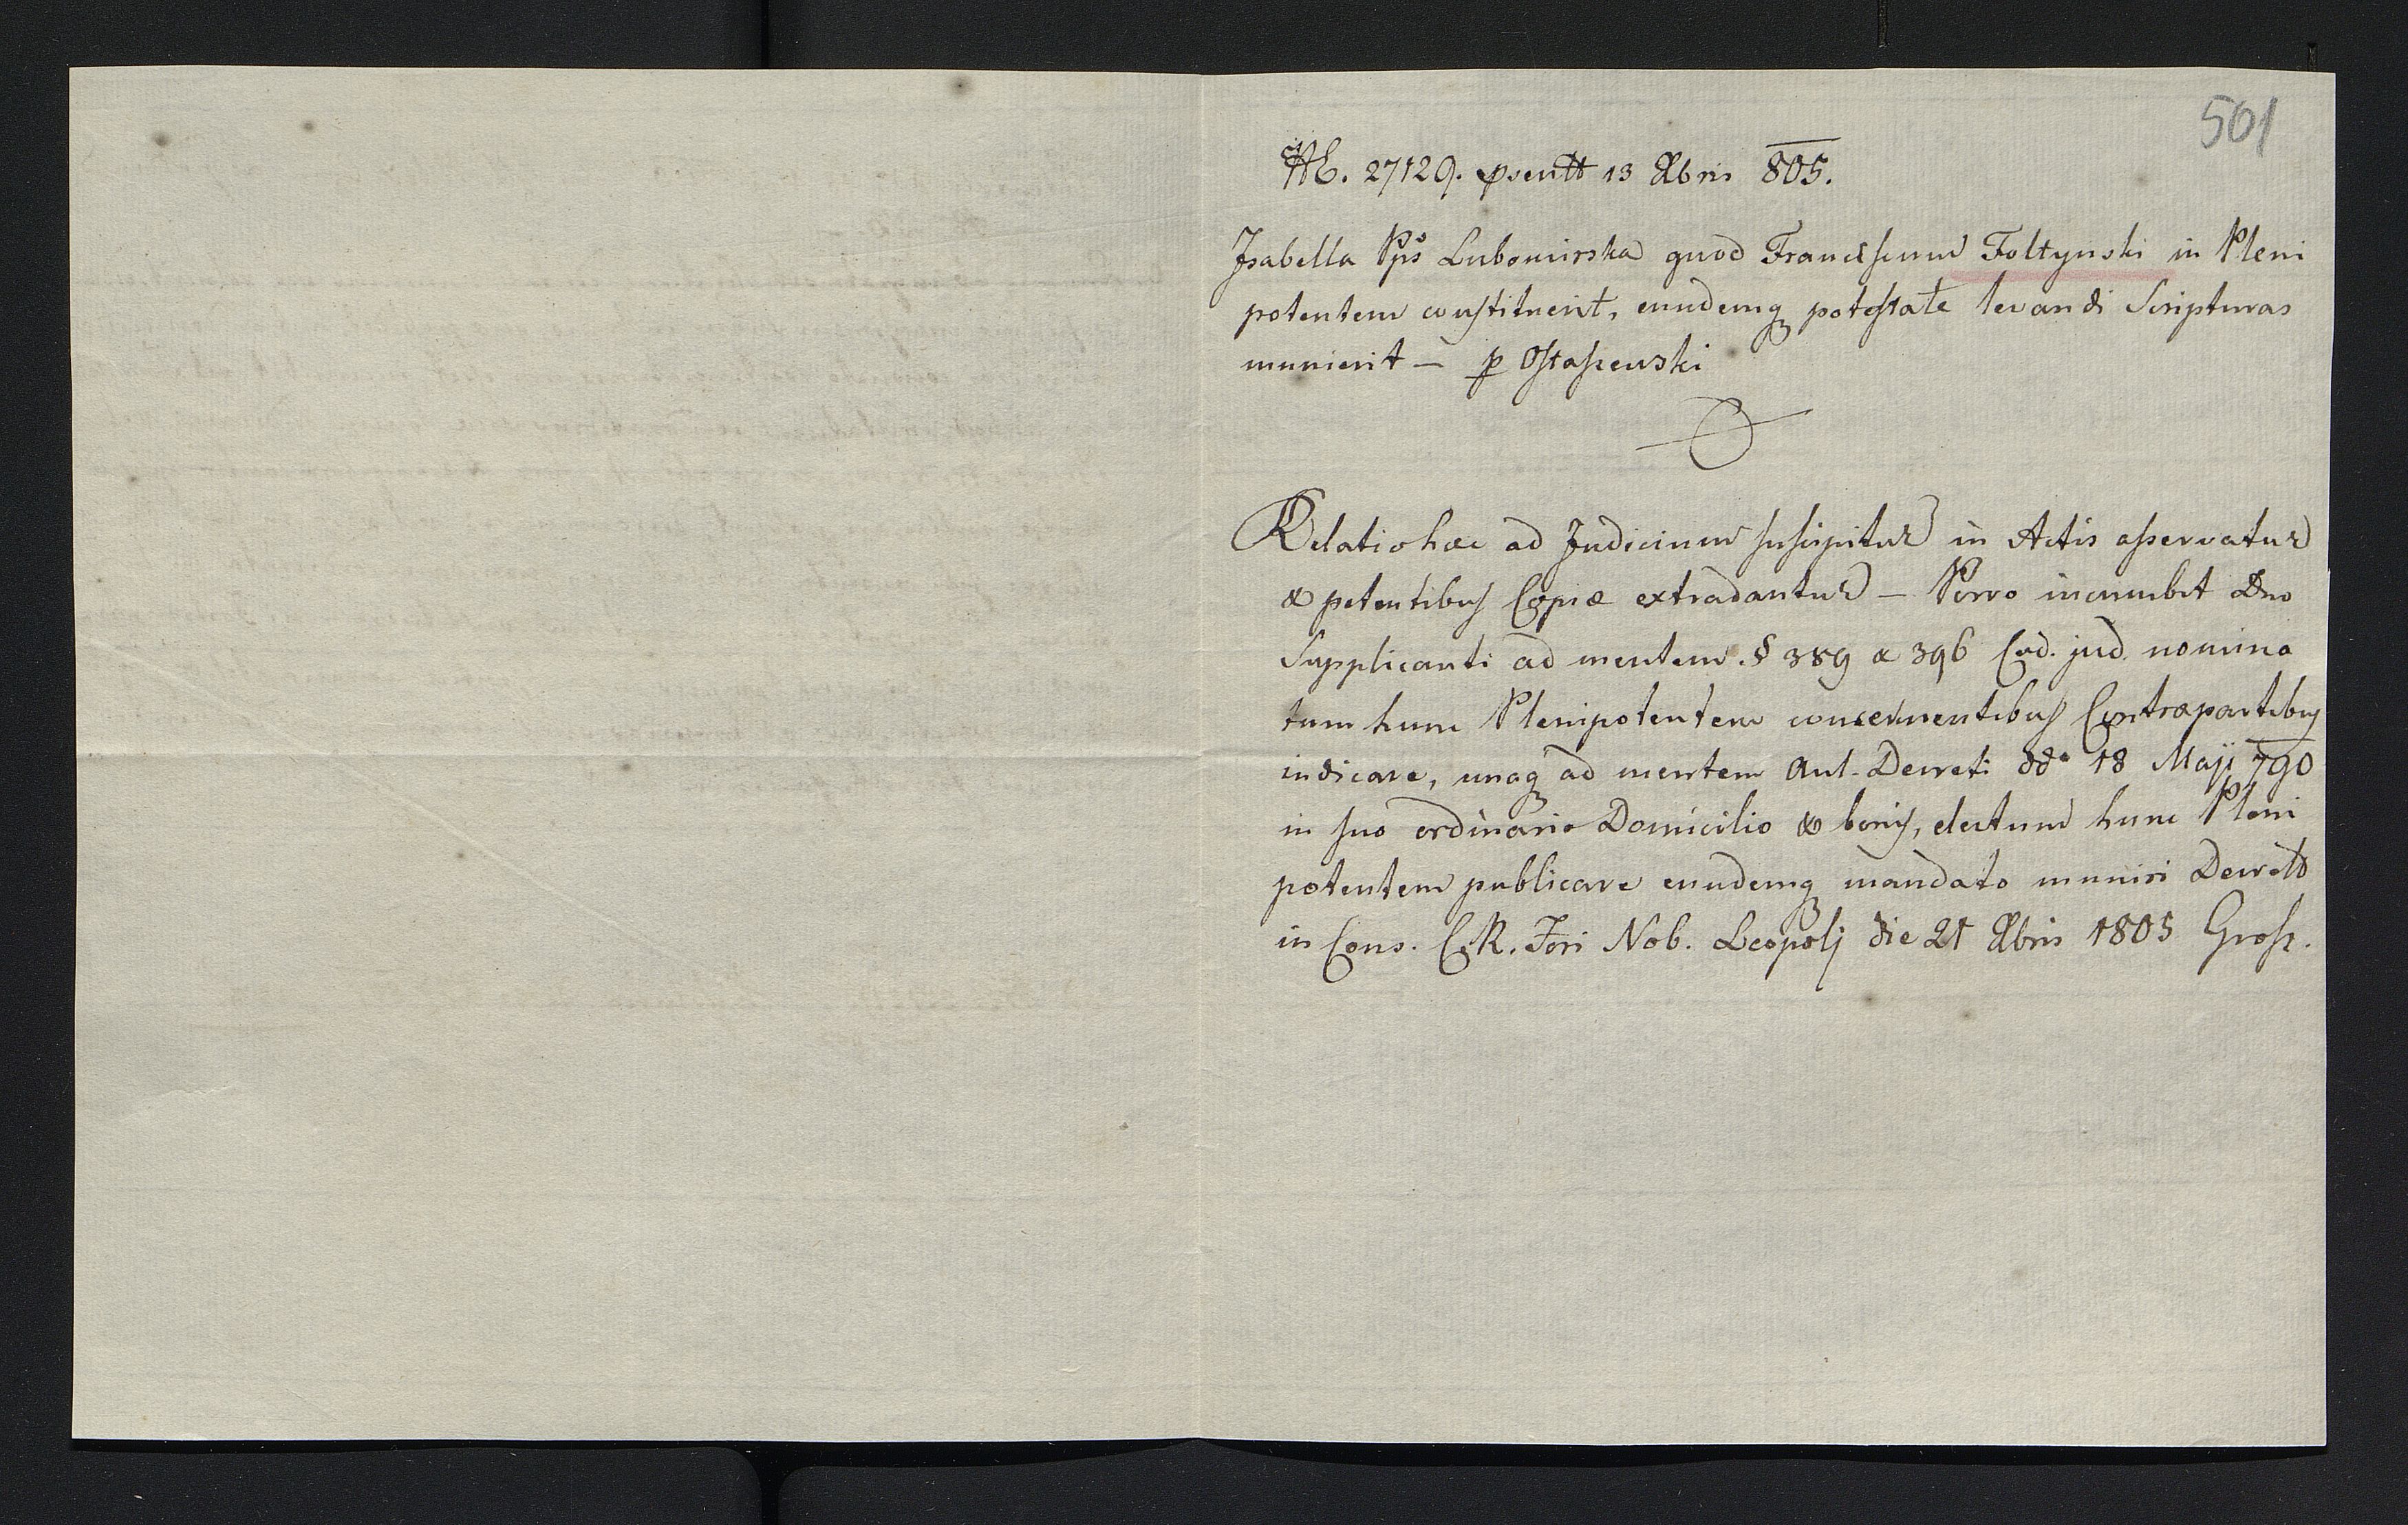 501
27129. psentt 13 Xbris 805.
Isabella Pps Lubomirska quod Franciscum Foltynski in Pleni
potentem constituerit, eundemq potestate levandi Scripturas
munierit — p Ostaszewski
Relatio hæc ad Judicium suscipitur in Actis asservatur
& petentibus Copiæ extradantur — Porro incumbet Dno
Supplicanti ad mentem § 389 & 396 Cod. jud. nomina
tum hunc Plenipotentem concernentibus Contrapartibus
indicare, unaq ad mentem Aul. Decreti dd° 18 Maji 790
in suo ordinario Domicilio & bonis, electum hunc Pleni
potentem publicare eundemq mandato muniri Decreto
in Cons. C.R. Fori Nob. Leopolj die 21 Xbris 1805 Grosz.